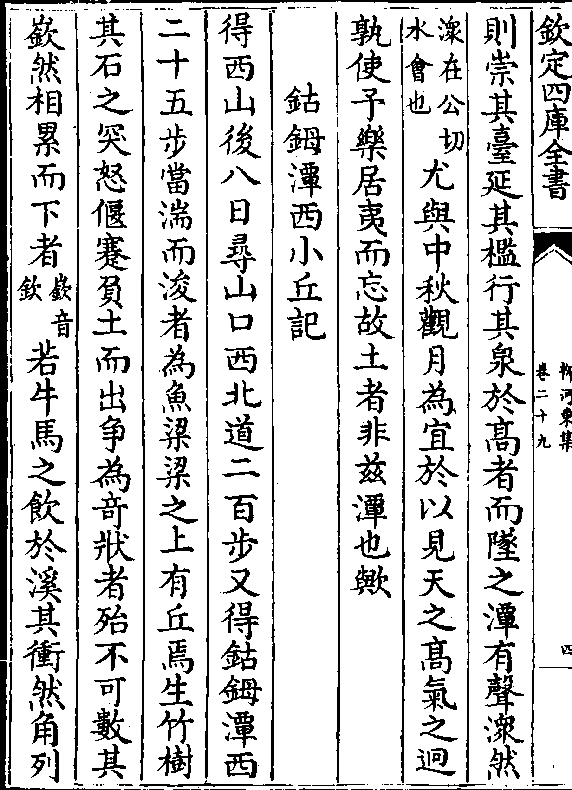 欽定四庫全書
柳河東集
卷二十九
四
則崇其臺延其檻行其泉於髙者而墜之潭有聲潀然
潀在公切
水會也
尤與中秋觀月為宜於以見天之髙氣之迥
孰使予樂居夷而忘故土者非兹潭也歟
鈷鉧潭西小丘記
得西山後八日尋山口西北道二百步又得鈷鉧潭西
二十五步當湍而浚者為魚梁梁之上有丘焉生竹樹
其石之突怒偃蹇負土而出争為竒狀者殆不可數其
嶔然相累而下者
嶔音
欽
若牛馬之飲於溪其衝然角列